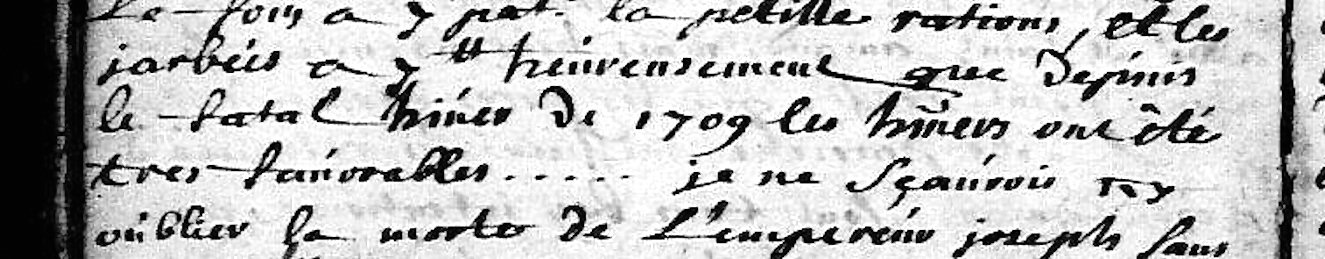 Le foin a 7 pat. la petitte rations, et les
jarbées a 7 tt heureusement que depuis
le fatal hiuer de 1709 les hiuers ont été
tres fauorables ..... je ne sçaurois
oublier la morte de L'empereur joseph sans